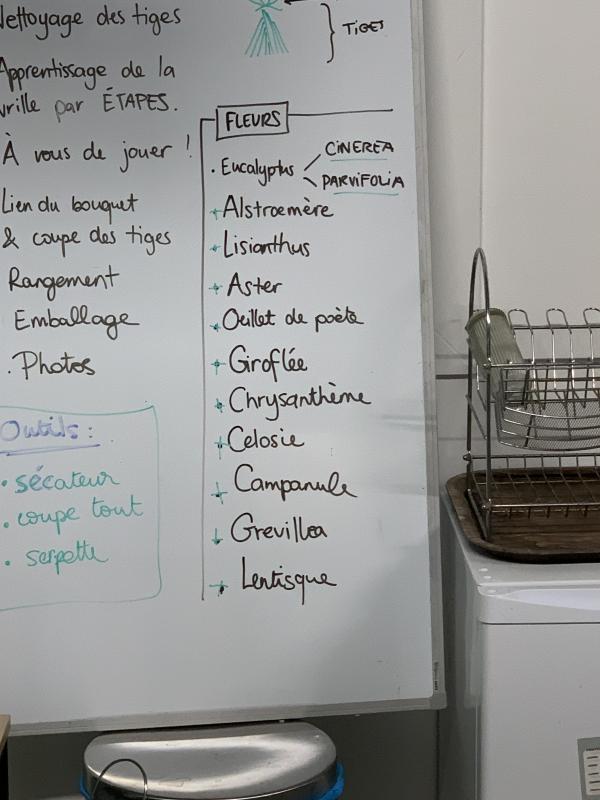 Nettoyage des tiges
Apprentissage de la
vrille par ÉTAPES.
À vous de jouer !
Lien du bouquet
& coupe des tiges
Rangement
Emballage
. Photos
Outils :
• sécateur
. coupe tout
• serpette
TIGES
FLEURS
. Eucalyptus
CINEREA
PARVIFOLIA
+ Alstroemère
+ Lisianthus
+ Aster
+ Oeillet de poète
+ Giroflée
+ Chrysanthème
+ Celosie
+ Campanule
+ Grevillea
+ Lentisque